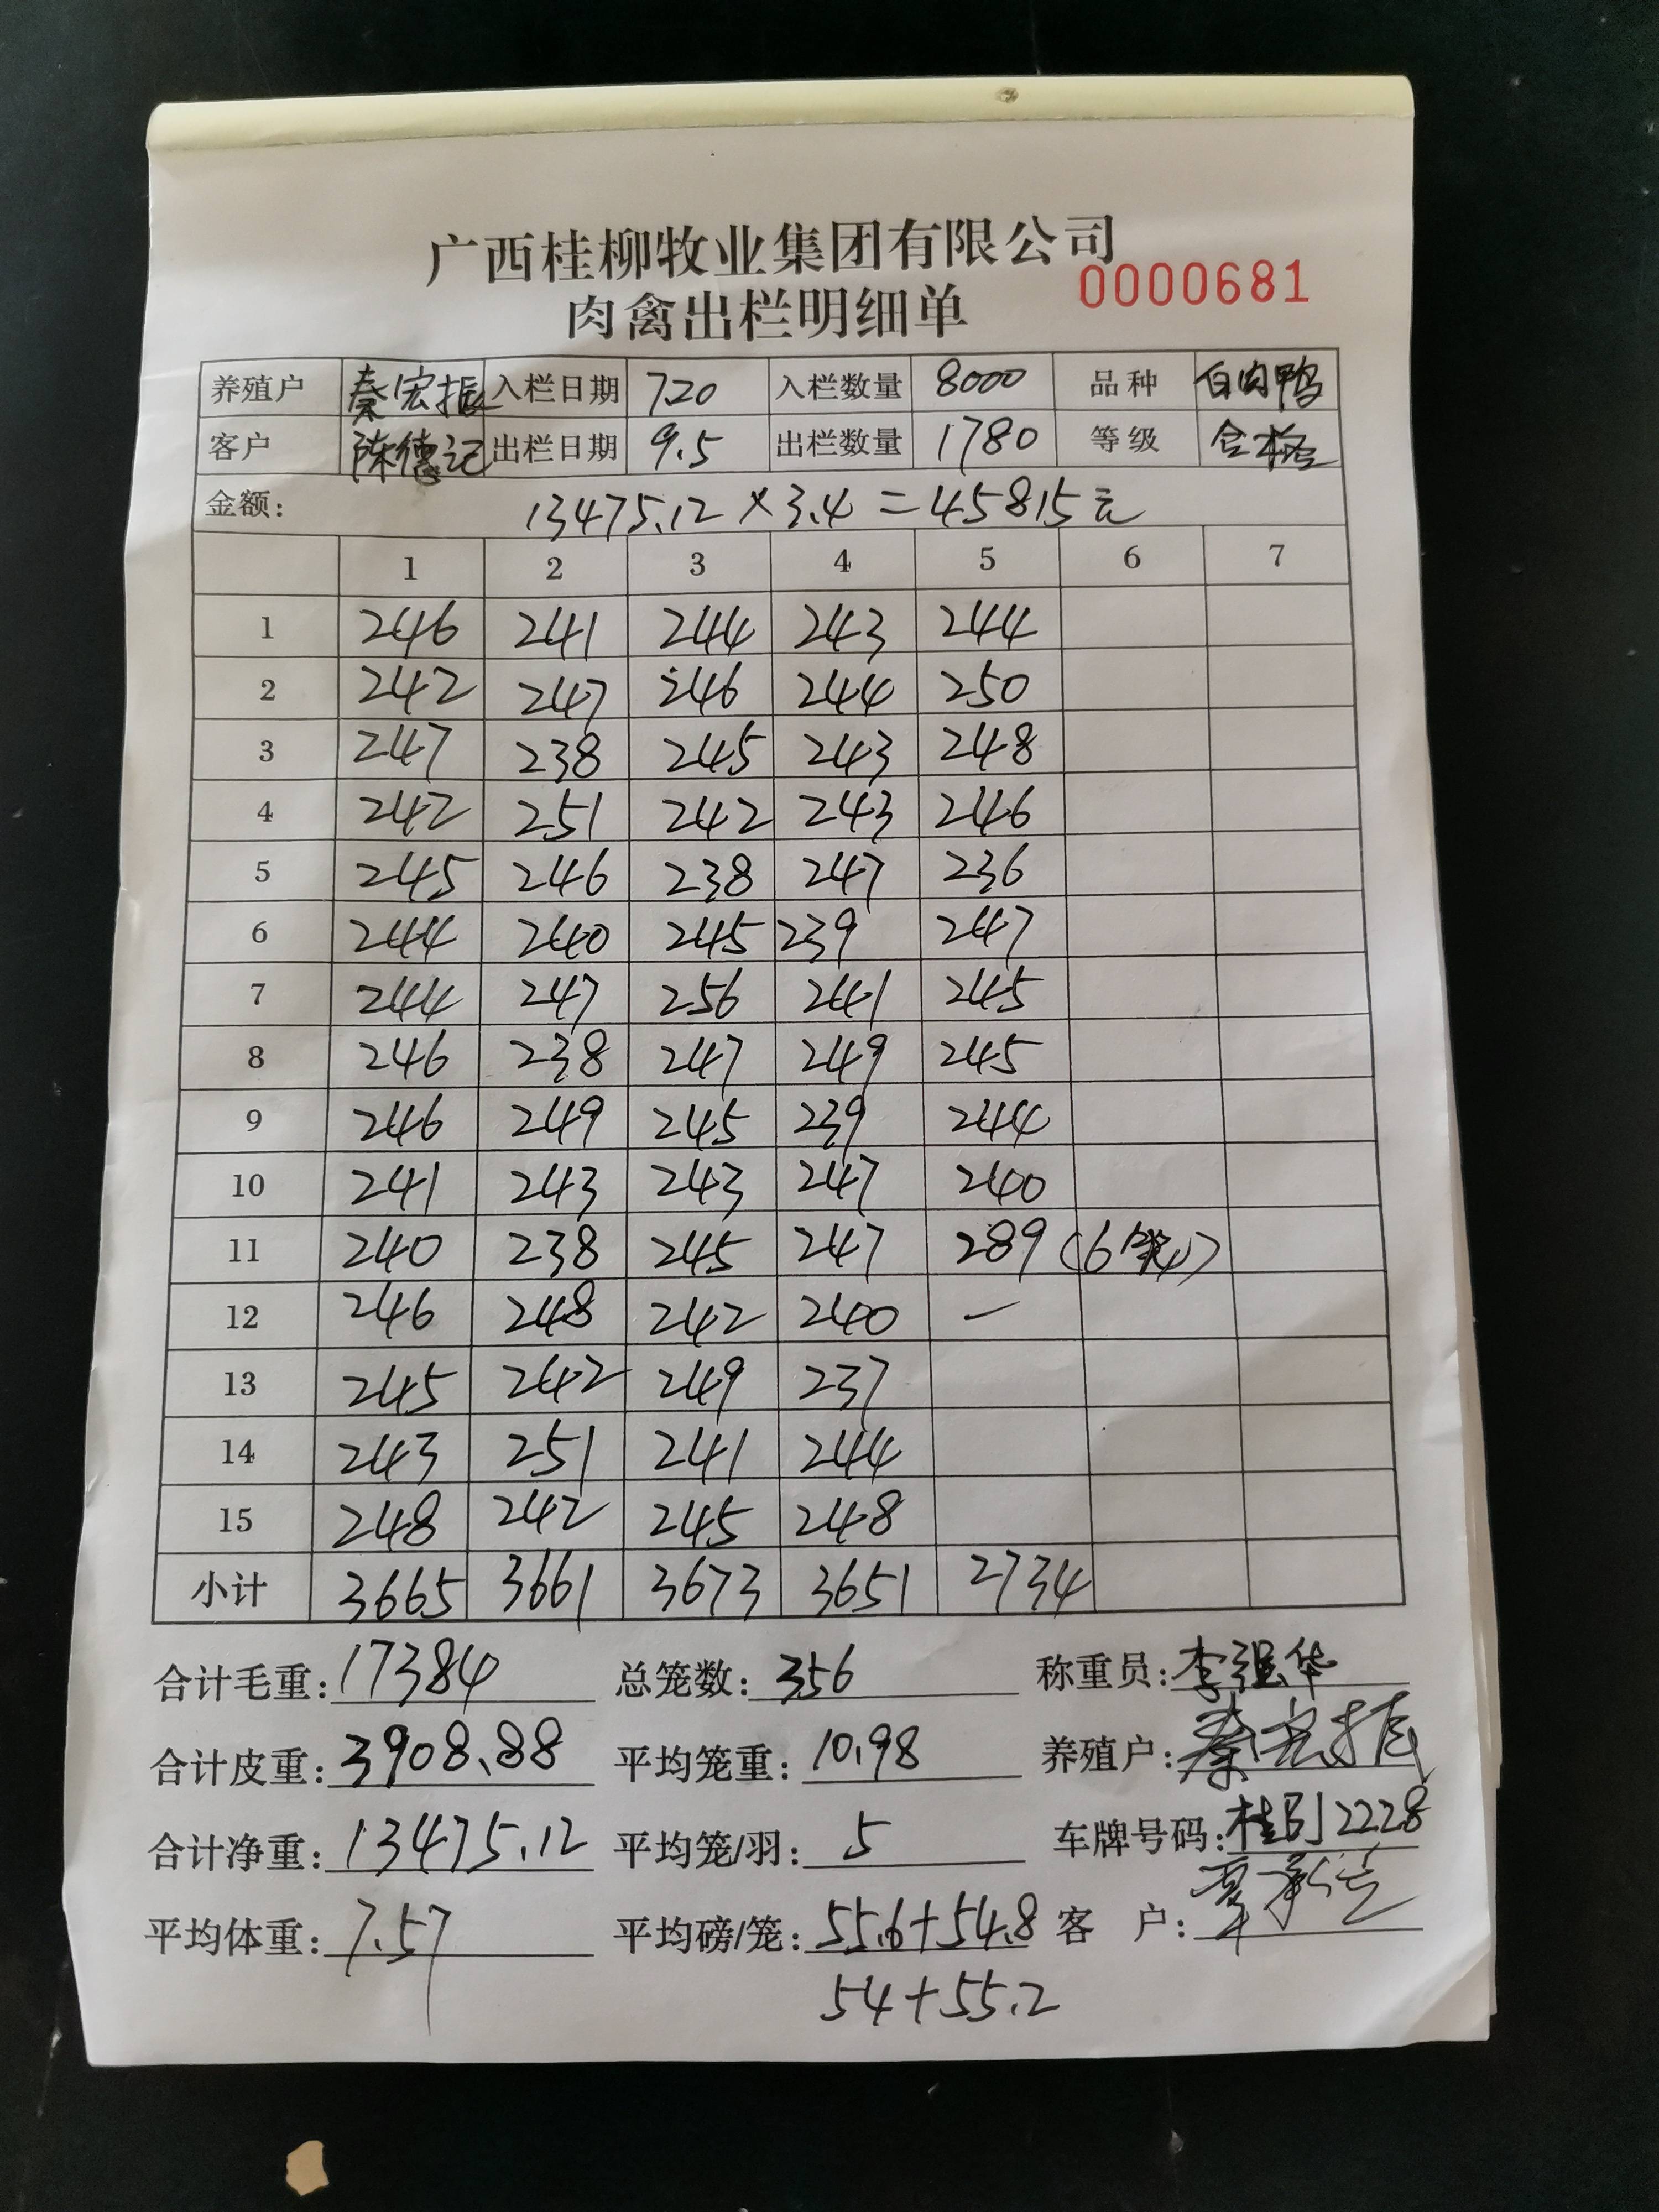 广西桂柳牧业集团有限公司
肉禽出栏明细单 0000681
养殖户 秦宏振 入栏日期 7.20 入栏数量 8000 品种 白肉鸭
客户 陈德记 出栏日期 9.5 出栏数量 1780 等级 合格
金额: 13475.12×3.4=45815元
1 2 3 4 5 6 7
1 246 241 244 243 244
2 242 247 246 244 250
3 247 238 245 243 248
4 242 251 242 243 246
5 245 246 238 247 236
6 244 240 245 239 247
7 244 247 256 241 245
8 246 238 247 249 245
9 246 249 245 239 244
10 241 243 243 247 240
11 240 238 245 247 289 (6)
12 246 248 242 240 —
13 245 242 249 237
14 243 251 241 244
15 248 242 245 248
小计 3665 3661 3673 3651 2734
合计毛重: 17384 总笼数: 356 称重员: 李强华
合计皮重: 3908.88 平均笼重: 10.98 养殖户: 秦宏振
合计净重: 13475.12 平均笼/羽: 5 车牌号码: 桂J2228
平均体重: 7.57 平均磅/笼: 55.6+54.8 客 户:
54+55.2